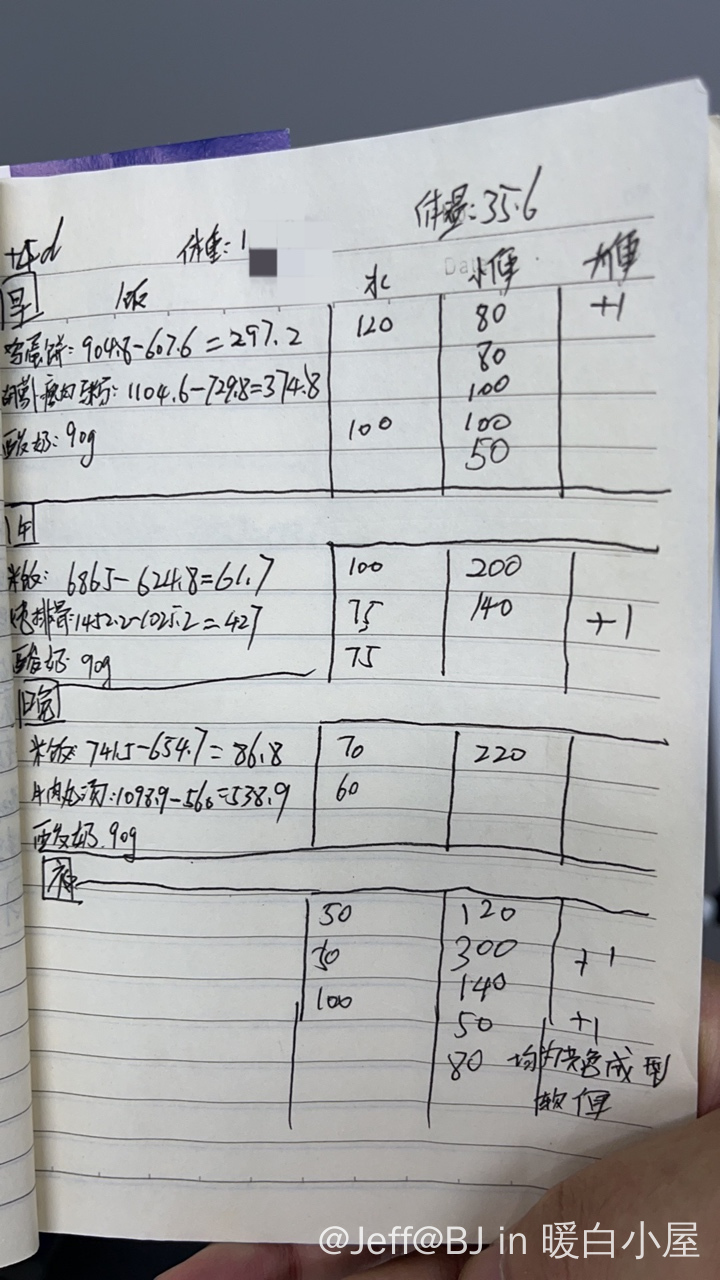 +4d 体重:1 体温:35.6
早 1饭 水 小便 大便
鸡蛋饼: 904.8-607.6=297.2 120 80 +1
80
胡萝卜瘦肉粥: 1104.6-729.8=374.8 100
酸奶: 90g 100 100
50
午
米饭: 686.5-624.8=61.7 100 200
排骨:1452.2-1025.2=427 75 140 +1
酸奶 90g 75
晚
米饭 741.5-654.7=86.8 70 220
牛肉:1098.9-560=538.9 60
酸奶.90g
夜
50 120
50 300 +1
100 140
50 +1
80 均为黄色成型
软便
@Jeff@BJ in 暖白小屋